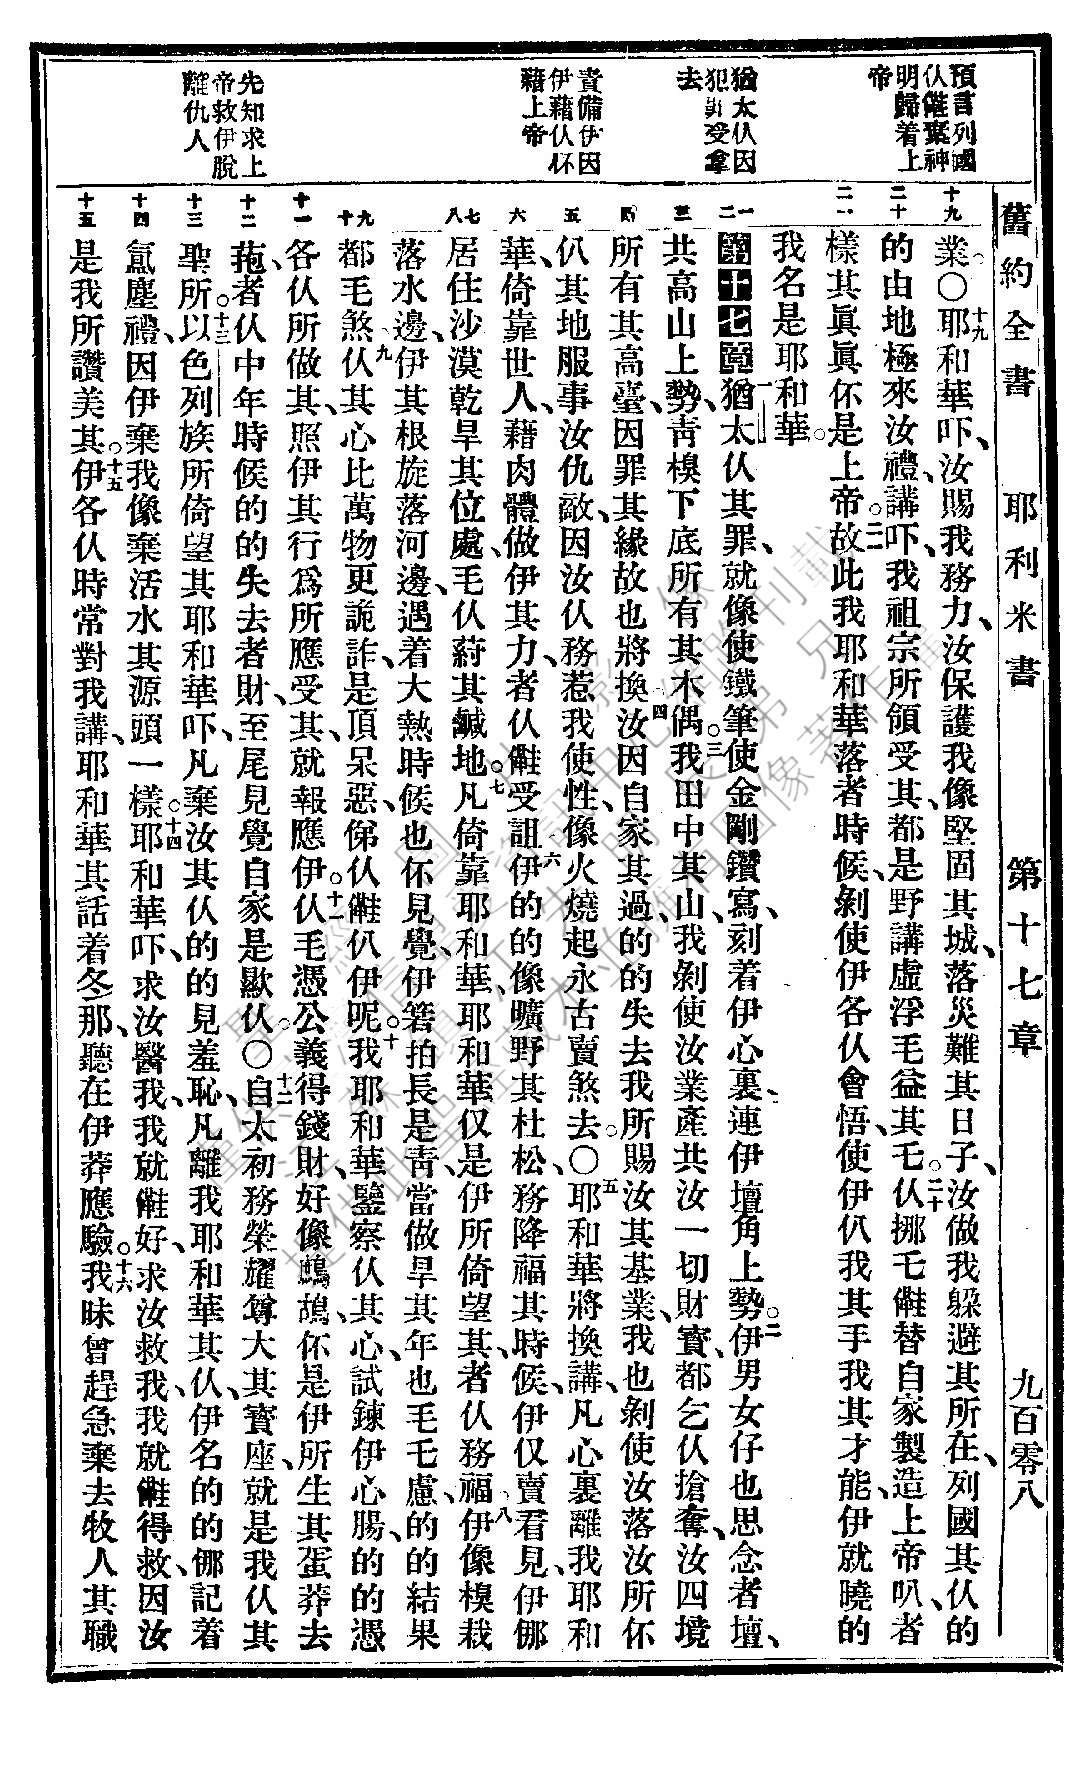 舊約全書 耶利米書 第十七章 九百零八
預言列國
仈㒰棄神
明歸着上
帝
猶太仈因
犯罪受拿
去
責備伊因
伊藉仈怀
藉上帝
先知求上
帝救伊脫
離仇人
十九
業○十九耶和華吓、汝賜我務力、汝保護我、像堅固其城、落災難其日子、汝做我躲避其所在、列國其仈的
二十
的由地極來汝禮、講吓、我祖宗所領受其、都是野講虛浮毛益其。二十乇仈挪乇㒰替自家製造上帝叭、者
二一
樣其眞眞伓是上帝。二一故此我耶和華落者時候、剝使伊各仈會悟、使伊仈我其手我其才能、伊就曉的
我名是耶和華。
一
二
第十七章 猶太仈其罪、就像使鐵筆使金剛鑽寫、刻着伊心裏、連伊壇角上勢。二伊男女仔也思念者壇、
三
共高山上勢、靑模下底所有其木偶。三我田中其山、我剝使汝業產共汝一切財寶、都乞仈搶奪、汝四境
四
所有其高臺、因罪其緣故也將換。四汝因自家其過、的的失去我所賜汝其基業、我也剝使汝落汝所伓
五
仈其地服事汝仇敵、因汝仈務惹我使性、像火燒起永古賣煞去。○五耶和華將換講、凡心裏離我耶和
六
華、倚靠世人、藉肉體做伊其力、者仈㒰受詛。六伊的的像曠野其杜松、務降福其時候、伊仅賣看見、伊㑚
七
八
居住沙漠乾旱其位處、毛仈葤其鹹地。七凡倚靠耶和華、耶和華仅是伊所倚望其、者仈務福。八伊像模栽
落水邊、伊其根旋落河邊、遇着大熱時候也伓見覺、伊箬拍長是靑、當做旱其年也毛乇慮、的的結果
九
十
都毛煞。九仈其心比萬物更詭詐、是頂呆惡、俤仈㒰仈伊呢。十我耶和華鑒察仈其心、試鍊伊心腸、的的憑
十一
各仈所做其、照伊其行爲所應受其、就報應伊。十一仈毛憑公義得錢財、好像鷓鴣伓是伊所生其蛋莽去
十二
菢、者仈中年時候的的失去者財、至尾見覺自家是歉仈。○十二自太初務榮耀尊大其寶座、就是我仈其
十三
聖所。十三以色列族所倚望其耶和華吓、凡棄汝其仈的的見羞恥、凡離我耶和華其仈、伊名的的㑚記着
十四
㲴塵禮、因伊棄我像棄活水其源頭一樣。十四耶和華吓、求汝醫我、我就㒰好、求汝救我、我就㒰得救、因汝
十五
是我所讚美其。十五伊各仈時常對我講、耶和華其話着冬那、聽在伊莽應驗。十六我昧曾趕急棄去牧人其職